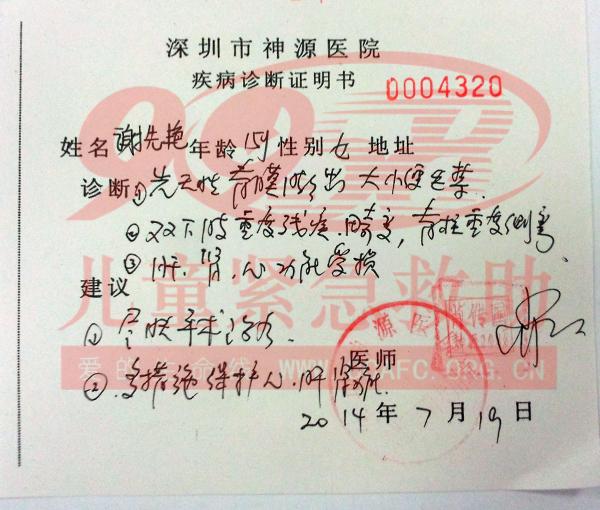 深圳市神源医院
疾病诊断证明书
0004320
姓名 谢先艳 年龄 15岁 性别 女 地址
诊断 ①先天性脊膜膨出 大小便失禁.
②双下肢重度残疾.畸变,脊柱重度侧弯
③肝.肾.心功能受损
建议
儿童紧急救助
① 手术治疗.
医师
爱的生命线 AFC.ORG.CN
② 措施保护心.肝肾功能.
源医
2014年7月19日